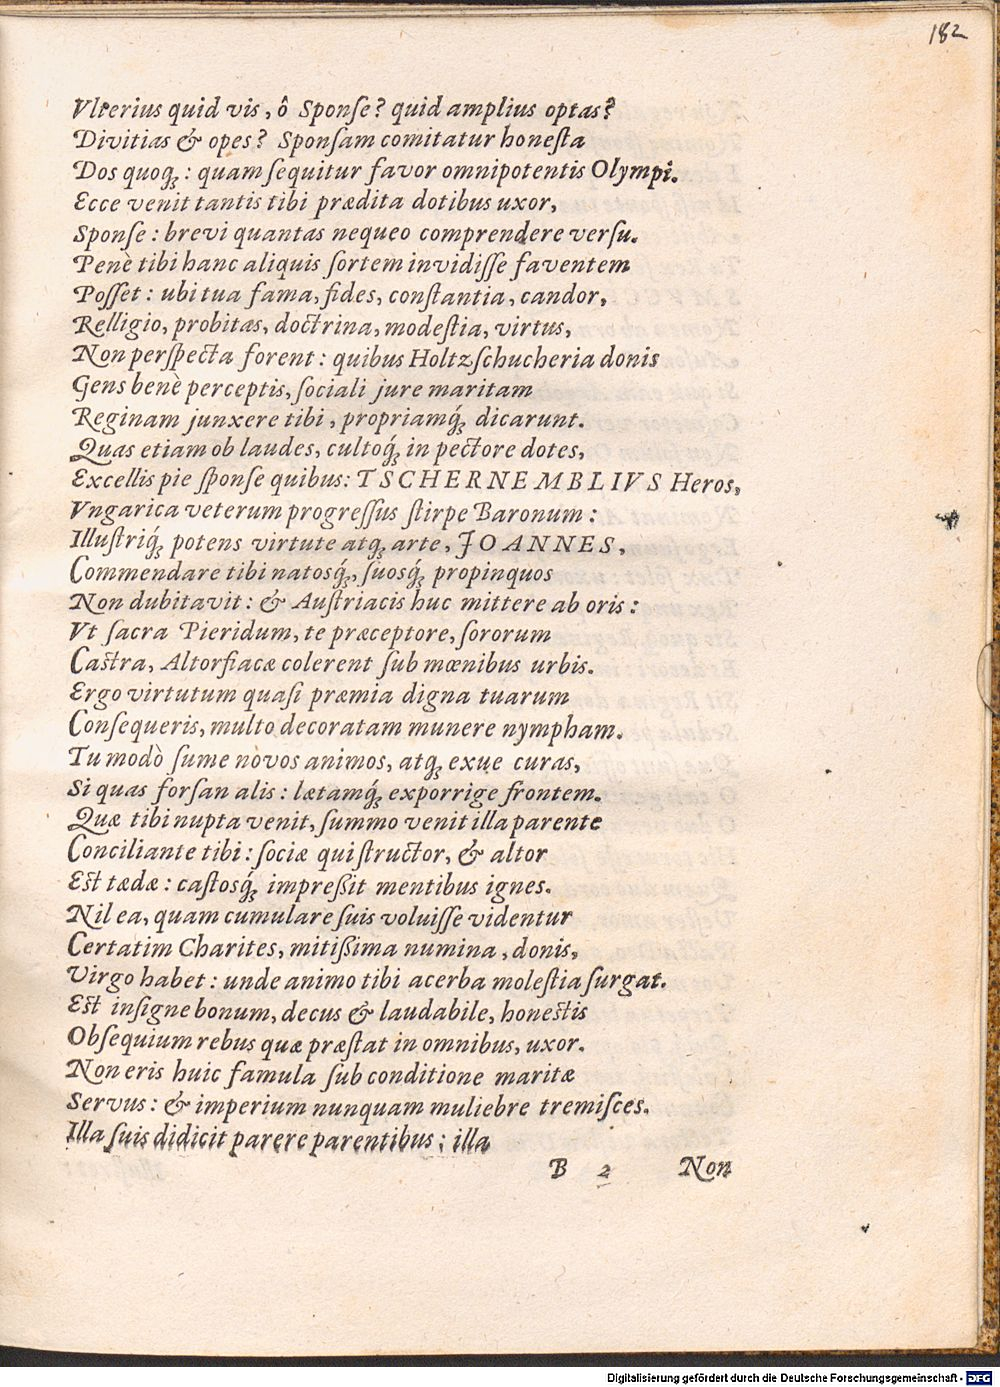 182
Vlterius quid vis, ô Sponſe? quid amplius optas?
Divitias & opes? Sponſam comitatur honeſta
Dos quoq́;: quam ſequitur favor omnipotentis Olympi.
Ecce venit tantis tibi prædita dotibus uxor,
Sponſe: brevi quantas nequeo comprendere verſu.
Penè tibi hanc aliquis ſortem invidiſſe faventem
Poſſet: ubi tua fama, fides, conſtantia, candor,
Relligio, probitas, doctrina, modeſtia, virtus,
Non perſpecta forent: quibus Holtzſchucheria donis
Gens benè perceptis, ſociali jure maritam
Reginam junxere tibi, propriamq́; dicarunt.
Quas etiam ob laudes, cultoq́; in pectore dotes,
Excellis pie ſponſe quibus: TSCHERNEMBLIVS Heros,
Vngarica veterum progreſſus ſtirpe Baronum:
Illuſtriq́; potens virtute atq; arte, JOANNES,
Commendare tibi natosq́;, ſuosq́; propinquos
Non dubitavit: & Auſtriacis huc mittere ab oris:
Vt ſacra Pieridum, te præceptore, ſororum
Caſtra, Altorfiacæ colerent ſub mœnibus urbis.
Ergo virtutum quaſi præmia digna tuarum
Conſequeris, multo decoratam munere nympham.
Tu modò ſume novos animos, atq; exue curas,
Si quas forſan alis: lætamq́; exporrige frontem.
Quæ tibi nupta venit, ſummo venit illa parente
Conciliante tibi: ſociæ qui ſtructor, & altor
Eſt tædæ: caſtosq́; impreßit mentibus ignes.
Nil ea, quam cumulare ſuis voluiſſe videntur
Certatim Charites, mitißima numina, donis,
Virgo habet: unde animo tibi acerba moleſtia ſurgat.
Eſt inſigne bonum, decus & laudabile, honeſtis
Obſequium rebus quæ præſtat in omnibus, uxor.
Non eris huic famula ſub conditione maritæ
Servus: & imperium nunquam muliebre tremiſces.
Illa ſuis didicit parere parentibus: illa
B 2 Non
Digitalisierung gefördert durch die Deutsche Forschungsgemeinschaft - DFG